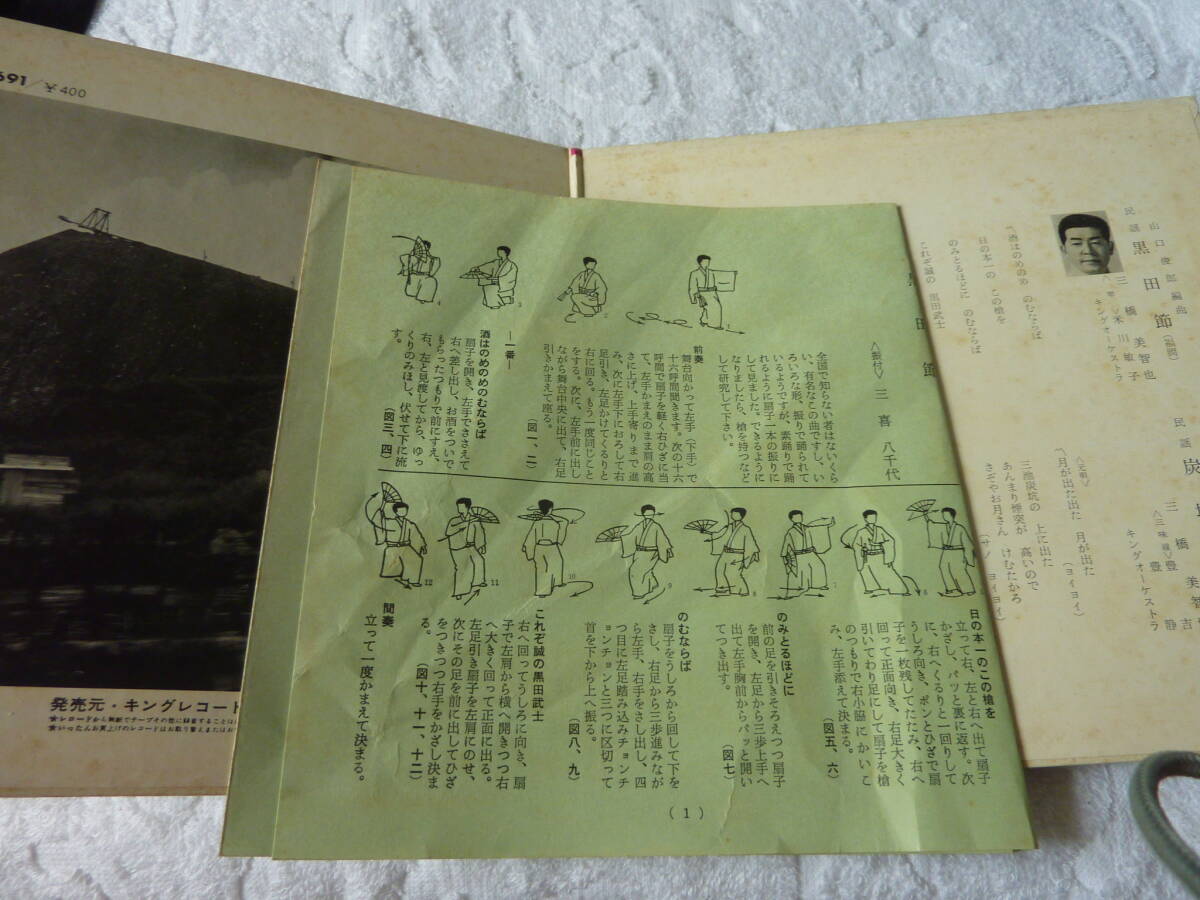 691/㋳400
発売元・キングレコード
山口俊郎編曲
民謡 黒田節 (福岡)
三橋美智也
キングオーケストラ
〽酒はのめのめ のむならば
日の本一の この槍を
のみとるほどに のむならば
これぞ誠の 黒田武士
民謡 炭
三橋美智
〈三味線〉豊
豊
静
吉
キングオーケストラ
〽月が出た出た 月が出た
(ヨイヨイ)
三池炭坑の 上に出た
あんまり煙突が 高いので
さぞやお月さん けむたかろ
(サノ ヨイヨイ)
田節
〈振付〉三喜八千代
全国で知らない者はないくら
い、有名なこの曲ですし、い
ろいろな形、振りで踊られて
いるようですが、素踊りで踊
れるように扇子一本の振りに
して見ました。できるように
なりましたら、槍を持つなど
して研究して下さい。
前奏
舞台向かって左手(下手)で
十六呼間聞きます。次の十六
呼間で扇子を軽く右ひざに当
て、左手かまえのまま肩の高
さに上げ、上手寄りまで進
み、次に左手下におろして右
足引き、左足かけてくるりと
右に回る。もう一度同じこと
をする。次に、左手前に出し
ながら舞台中央に出て、右足
引きかまえて座る。
(図一、二)
―一番―
酒はのめのめのむならば
扇子を開き、左手でささえて
右へ差し出し、お酒をついで
もらったつもりで前にすえ、
右、左と見渡してから、ゆっ
くりのみほし、伏せて下に流
す。
(図三、四)
日の本一のこの槍を
立って右、左と右へ出て扇子
かざし、パッと裏に返す。次
に、右へくるりと一回りして
うしろ向き、ポンとひざで扇
子を一枚残してたたみ、右へ
回って正面向き、右足大きく
引いてわり足にして扇子を槍
のつもりで右小脇にかいこ
み、左手添えて決まる。
(図五、六)
のみとるほどに
前の足を引きそろえつつ扇子
を開き、左足から三歩上手へ
出て左手胸前からパッと開い
てつき出す。
(図七)
のむならば
扇子をうしろから回して下を
さし、右足から三歩進みなが
ら左手、右手をさし出し、四
つ目に左足踏み込みチョンチ
ョンチョンと三つに区切って
首を下から上へ振る。
(図八、九)
これぞ誠の黒田武士
右へ回ってうしろに向き、扇
子で左肩から横へ開きつつ右
へ大きく回って正面に出る。
左足引き扇子を左肩にのせ、
次にその足を前に出してひざ
をつきつつ右手をかざし決ま
る。
(図十、十一、十二)
間奏
立って一度かまえて決まる。
(1)